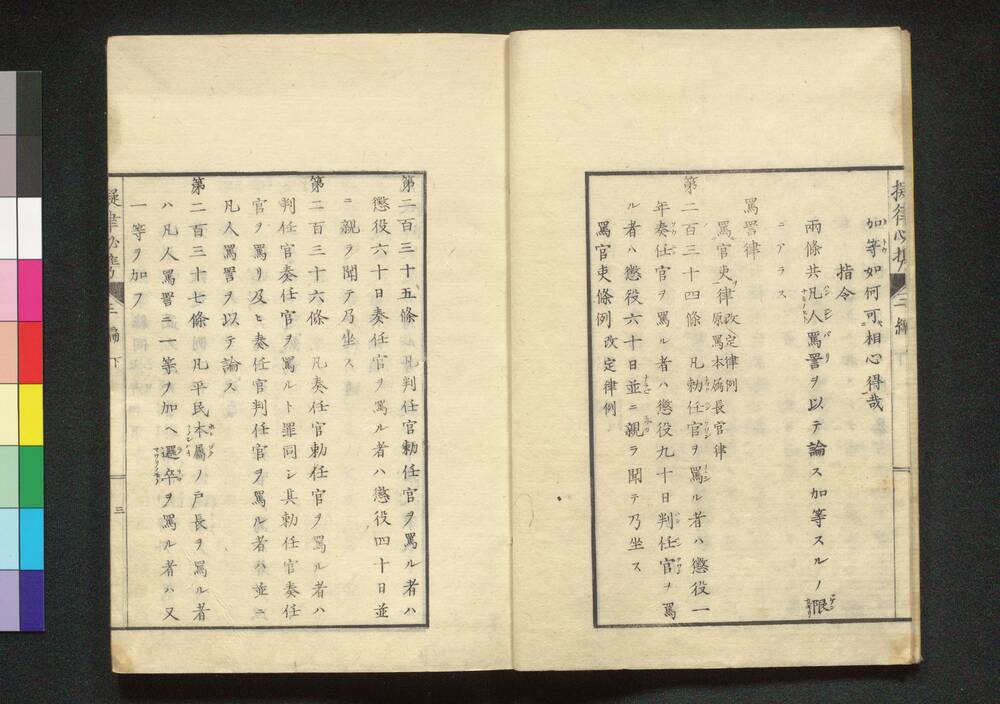 擬律必携 三編 下
加等如何可相心得哉
指令
兩條共凡人罵詈ヲ以テ論ス加等スルノ限
ニアラス
罵詈律
罵官吏律 改定律例 原罵本屬長官律
第二百三十四條 凡勅任官ヲ罵ル者ハ懲役一
年奏任官ヲ罵ル者ハ懲役九十日判任官ヲ罵
ル者ハ懲役六十日並ニ親ラ聞テ乃坐ス
罵官吏條例 改定律例
第二百三十五條 凡判任官勅任官ヲ罵ル者ハ
懲役六十日奏任官ヲ罵ル者ハ懲役四十日並
ニ親ヲ聞テ乃坐ス
第二百三十六條 凡奏任官勅任官ヲ罵ル者ハ
判任官奏任官ヲ罵ルト罪同シ其勅任官奏任
官ヲ罵リ及ヒ奏任官判任官ヲ罵ル者ハ並ニ
凡人罵詈ヲ以テ論ス
第二百三十七條 凡平民本屬ノ戸長ヲ罵ル者
ハ凡人罵詈ニ一等ヲ加ヘ邏卒ヲ罵ル者ハ又
一等ヲ加フ
三編 下 三